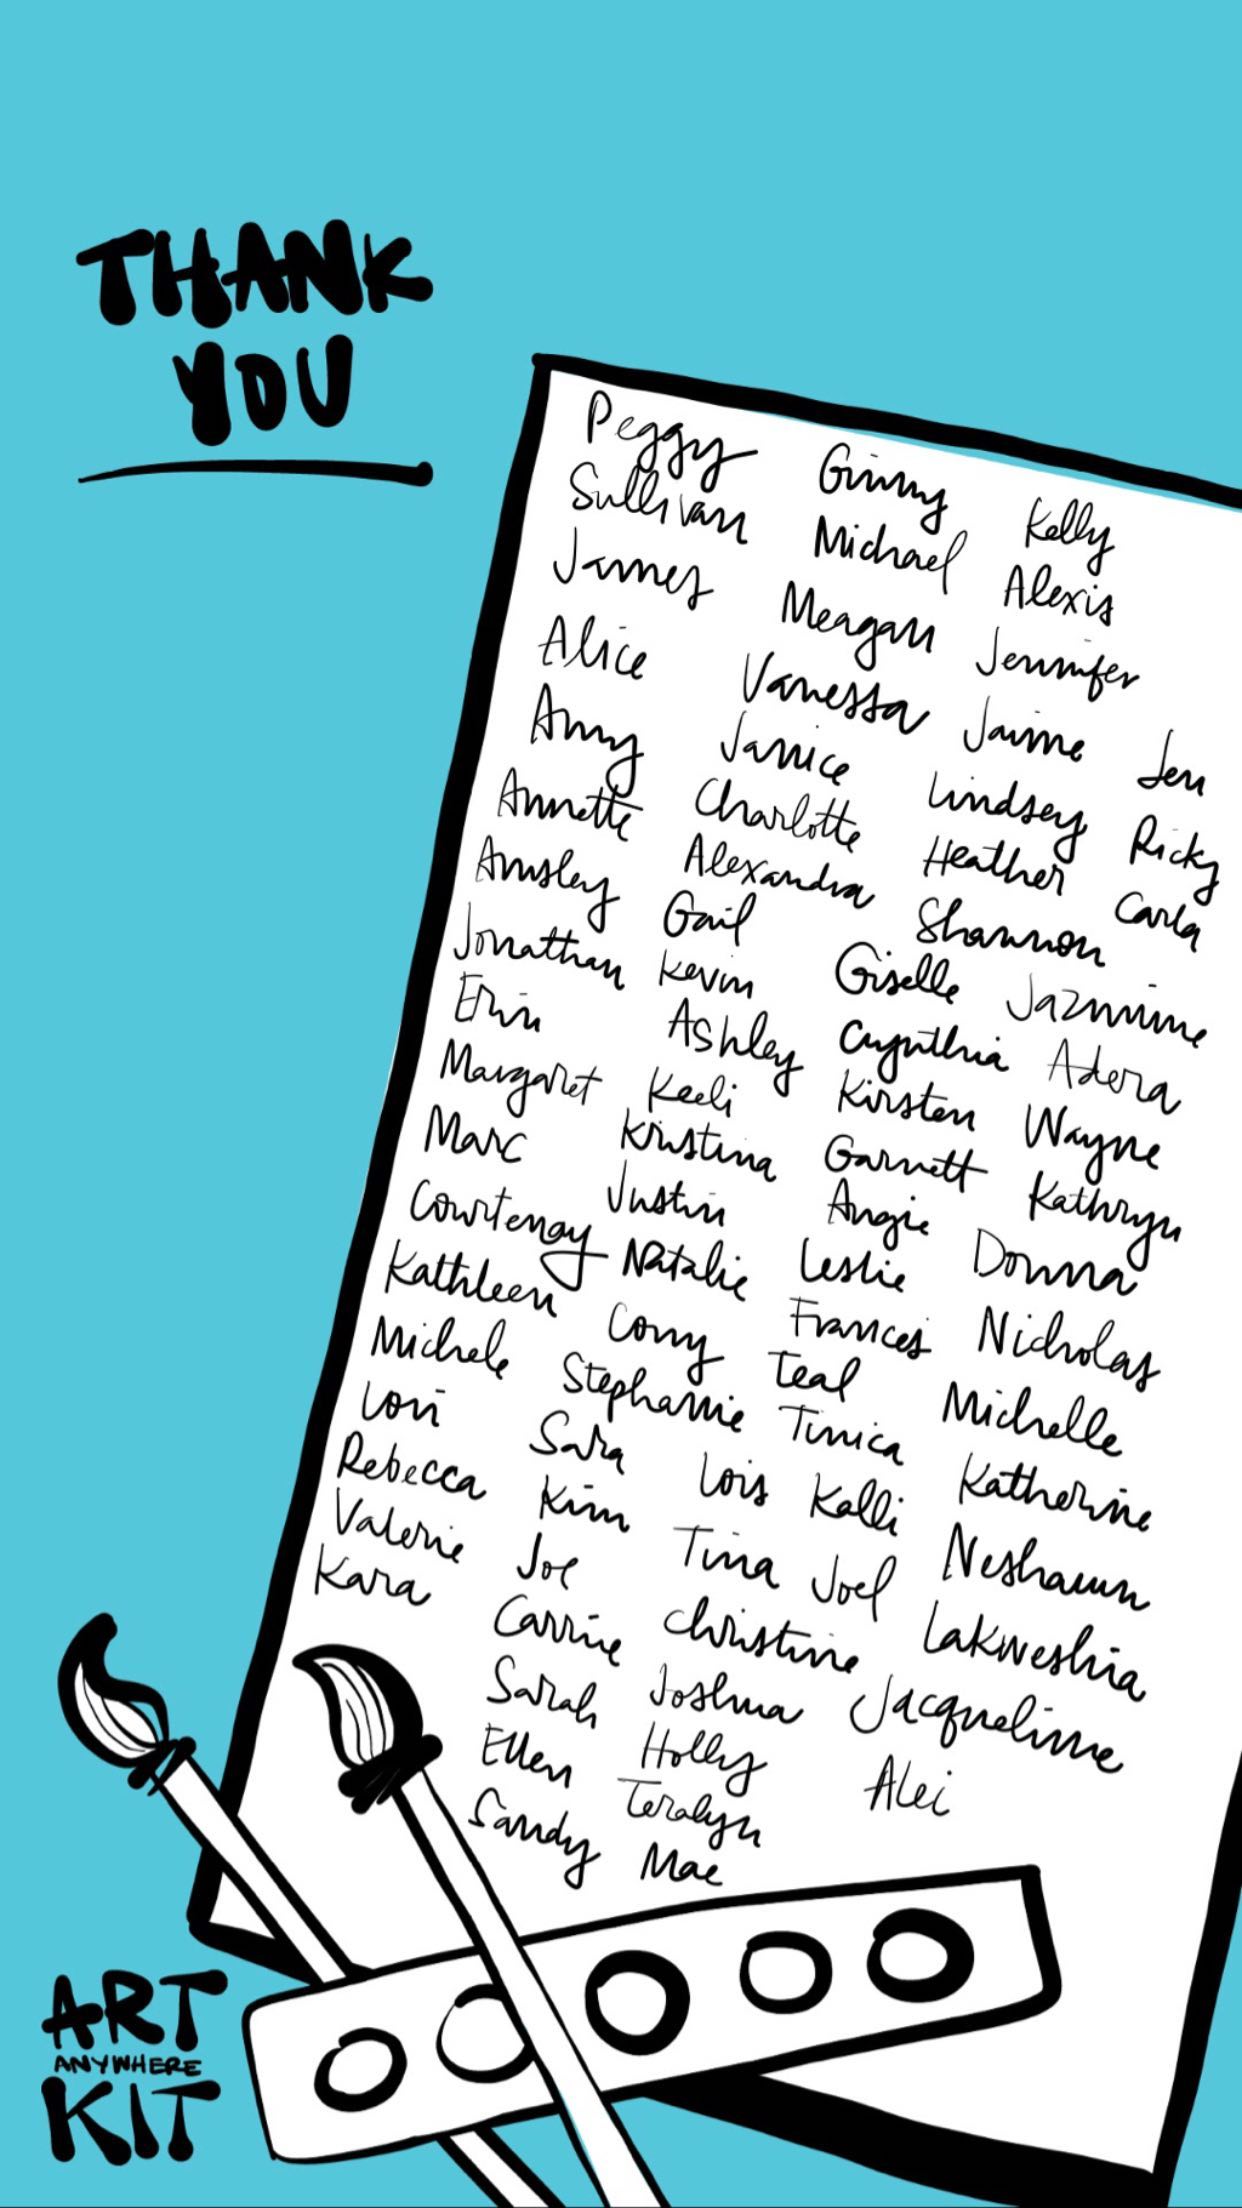 THANK
YOU
Peggy Ginny Kelly
Sullivan Michael Alexis
James Meagan Jennifer
Alice Vanessa Jaime Jen
Amy Janice Lindsey Ricky
Annette Charlotte Heather Carla
Ansley Alexandra Shannon
Jonathan Gail Giselle Jazmine
Erin Kevin Cynthia Adera
Margaret Ashley Kirsten Wayne
Marc Keeli Garnett Kathryn
Courtenay Kristina Angie Donna
Kathleen Justin Leslie Nicholas
Michele Natalie Frances Michelle
Lori Corry Teal Katherine
Rebecca Stephanie Tinica Neshawn
Valerie Sara Lois Kalli Lakweshia
Kara Kim Tina Joel Jacqueline
Joe Christine Alei
Carrie Joshua
Sarah Holly
Ellen Teralyn
Sandy Mae
ART
ANYWHERE
KIT